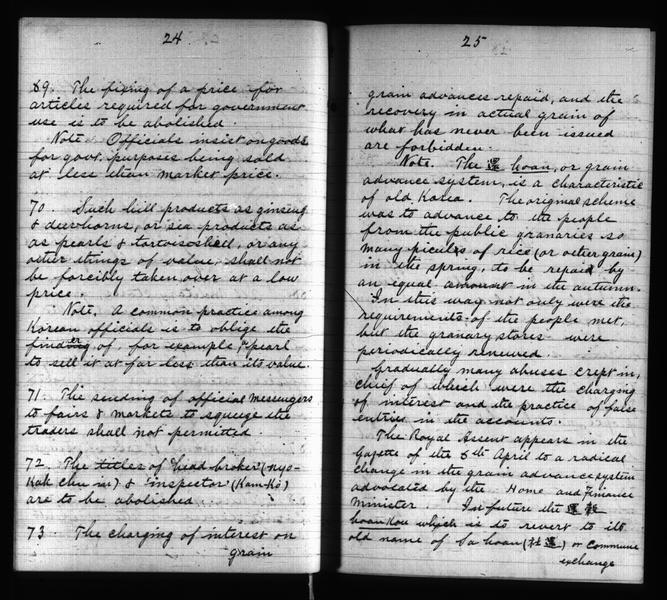 24
69. The fixing of a price for
articles required for government
use is to be abolished.
Note Officials insist on goods
for govt. purposes being sold
at less than market price.
70 Such hill products as ginseng
& deerhorns, or sea products as
as pearls & tortoiseshell, or any
other things of value, shall not
be forcibly taken over at a low
price.
Note. A common practice among
Korean officials is to oblige the
finder of for example a pearl
to sell it at far less than its value.
71. The sending of official messengers
to fairs & markets to squeeze the
traders shall not permitted
72 The titles of head broker (nyo-
Kak chu in) & inspector (Kam-Ko)
are to be abolished.
73 The charging of interest on
grain
25
grain advances repaid, and the
recovery in actual grain of
what has never been issued
are forbidden.
Note. The 還 hoan, or grain
advance system, is a characteristic
of old Korea. The original scheme
was to advance to the people
from the public granaries so
many piculs of rice (or other grain)
in the spring, to be repaid by
an equal amount in the autumn.
In this way not only were the
requirements of the people met,
but the granary stores were
periodically renewed.
Gradually many abuses crept in,
chief of which were the charging
of interest and the practice of false
entries in the accounts.
The Royal Assent appears in the
Gazette of the 6th April to a radical
change in the grain advance system
advocated by the Home and Finance
Minister. In future the 還穀
hoan Kou which is to revert to its
old name of Sa hoan (社還) or Commune
exchange